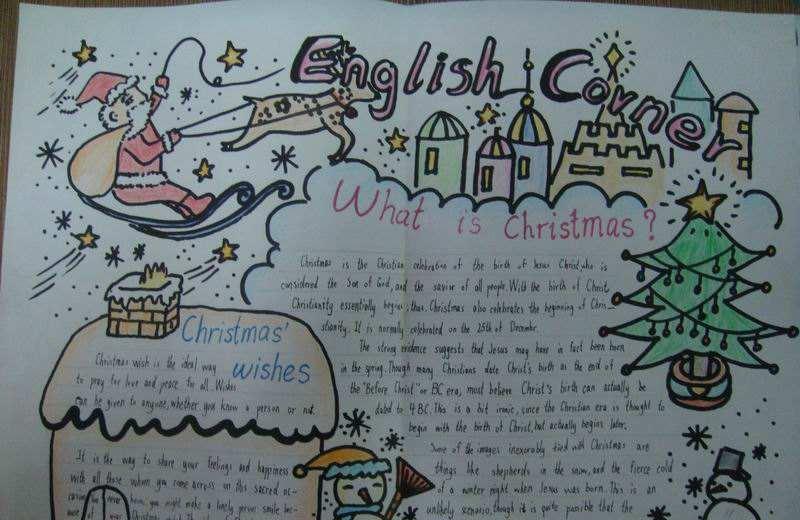 English Corner
What is Christmas?
Christmas is the Christian celebration of the birth of Jesus Christ, who is
considered the Son of God, and the savior of all people. With the birth of Christ
Christianity essentially begins thus. Christmas also celebrates the beginning of Chris-
stianity. It is normally celebrated on the 25th of December.
The strong evidence suggests that Jesus may have in fact been born
in the spring. Though many Christians date Christ's birth as the end of
the "Before Christ" or BC era, most believe Christ's birth can actually be
dated to 4 B.C. This is a bit ironic, since the Christian era is thought to
begin with the birth of Christ, but actually begins later.
Some of the images inexorably tied with Christmas are
things like shepherds in the snow, and the fierce cold
of a winter night when Jesus was born. This is an
unlikely scenario, though it is quite possible that the
Christmas'
wishes
Christmas wish is the ideal way
to pray for love and peace for all. Wishes
can be given to anyone, whether you know a person or not.
It is the way to share your feelings and happiness
with all those whom you come across on this sacred oc-
him, you might make a lonely person smile bec-